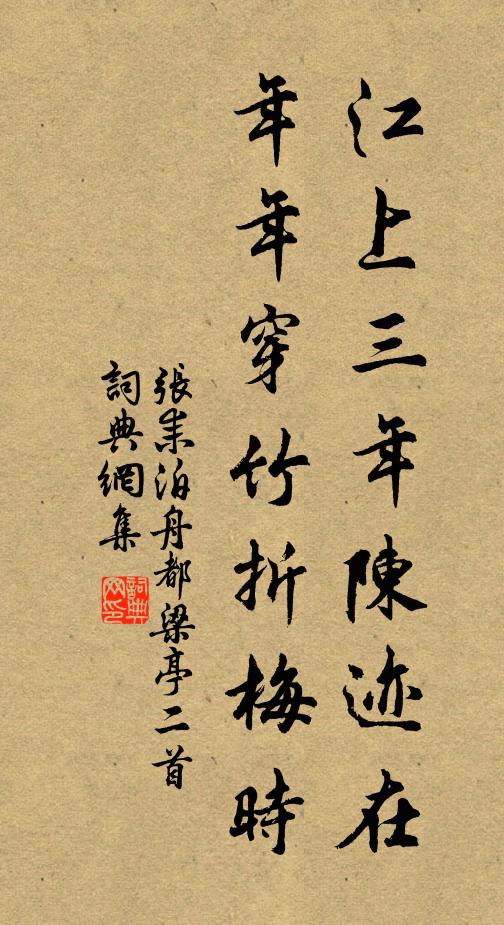 江上三年陳迹在
年年穿竹折梅時
張耒泊舟都梁亭二首
詞典網集
詞典網印